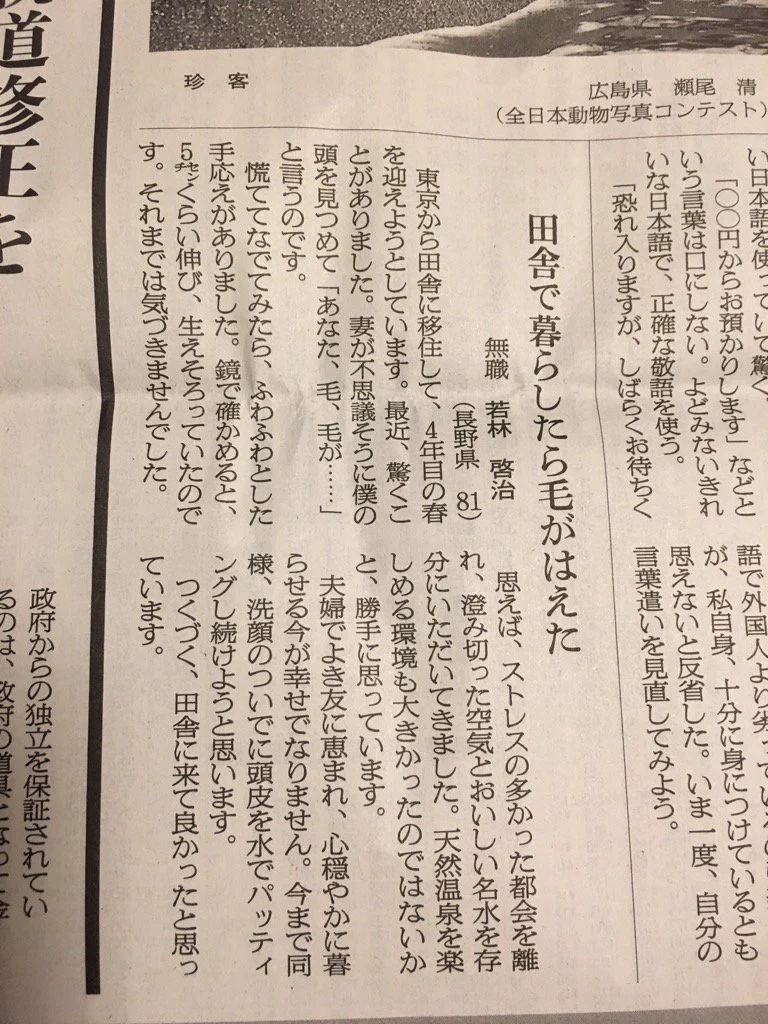 珍客
広島県 瀬尾 清
(全日本動物写真コンテスト)
い日本語を使っていて驚く。
「〇〇円からお預かりします」などと
いう言葉は口にしない。よどみないきれ
いな日本語で、正確な敬語を使う。
「恐れ入りますが、しばらくお待ちく
が、私自身、十分に身につけているとも
思えないと反省した。いま一度、自分の
言葉遣いを見直してみよう。
田舎で暮らしたら毛がはえた
無職 若林 啓治
(長野県 81)
東京から田舎に移住して、4年目の春
を迎えようとしています。最近、驚くこ
とがありました。妻が不思議そうに僕の
頭を見つめて「あなた、毛、毛が……」
と言うのです。
慌ててなでてみたら、ふわふわとした
手応えがありました。鏡で確かめると、
5㌢くらい伸び、生えそろっていたので
す。それまでは気づきませんでした。
思えば、ストレスの多かった都会を離
れ、澄み切った空気とおいしい名水を存
分にいただいてきました。天然温泉を楽
しめる環境も大きかったのではないか
と、勝手に思っています。
夫婦でよき友に恵まれ、心穏やかに暮
らせる今が幸せでなりません。今まで同
様、洗顔のついでに頭皮を水でパッティ
ングし続けようと思います。
つくづく、田舎に来て良かったと思っ
ています。
道修正を
政府からの独立を保証されてい
るのは、政府の道具となって